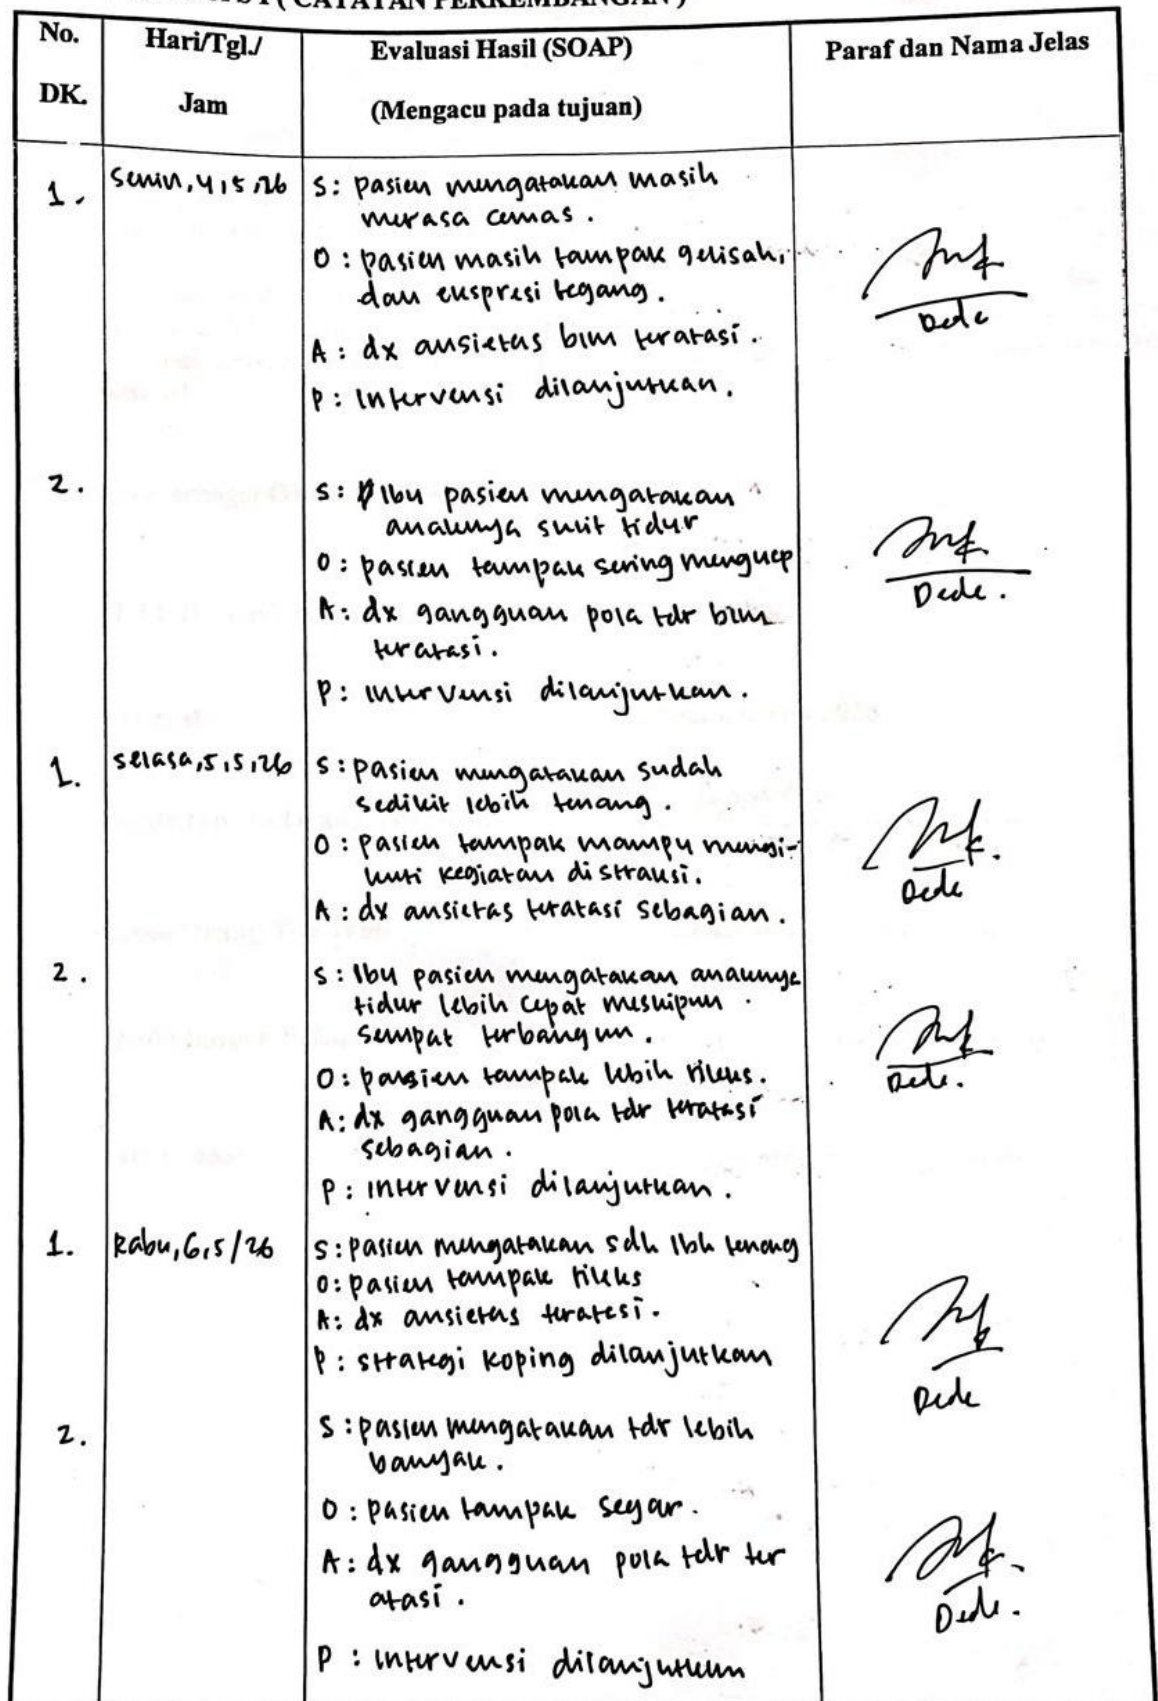 ( CATATAN PERKEMBANGAN )
No.
DK.
Hari/Tgl./
Jam
Evaluasi Hasil (SOAP)
(Mengacu pada tujuan)
Paraf dan Nama Jelas
1. Senin, 4,5,26 S: pasien mengatakan masih
merasa cemas.
O: pasien masih tampak gelisah,
dan ekspresi tegang.
Dede
A: dx ansietas blm teratasi.
P: Intervensi dilanjutkan.
2. S: Ibu pasien mengatakan
anaknya sulit tidur
O: pasien tampak sering menguap
Dede.
A: dx gangguan pola tdr blm
teratasi.
P: Intervensi dilanjutkan.
1. Selasa, 5,5,26 S: pasien mengatakan sudah
sedikit lebih tenang.
O: pasien tampak mampu mengi-
kuti kegiatan distraksi.
Dede
A: dx ansietas teratasi sebagian.
2. S: Ibu pasien mengatakan anaknya
tidur lebih cepat meskipun
sempat terbangun.
O: pasien tampak lebih rileks.
Dede.
A: dx gangguan pola tdr teratasi
sebagian.
P: intervensi dilanjutkan.
1. Rabu, 6,5/26 S: pasien mengatakan sdh lbh tenang
O: pasien tampak rileks
A: dx ansietas teratasi.
P: strategi koping dilanjutkan
Dede
2. S: pasien mengatakan tdr lebih
banyak.
O: pasien tampak segar.
A: dx gangguan pola tdr ter
atasi.
Dede.
P: intervensi dilanjutkan